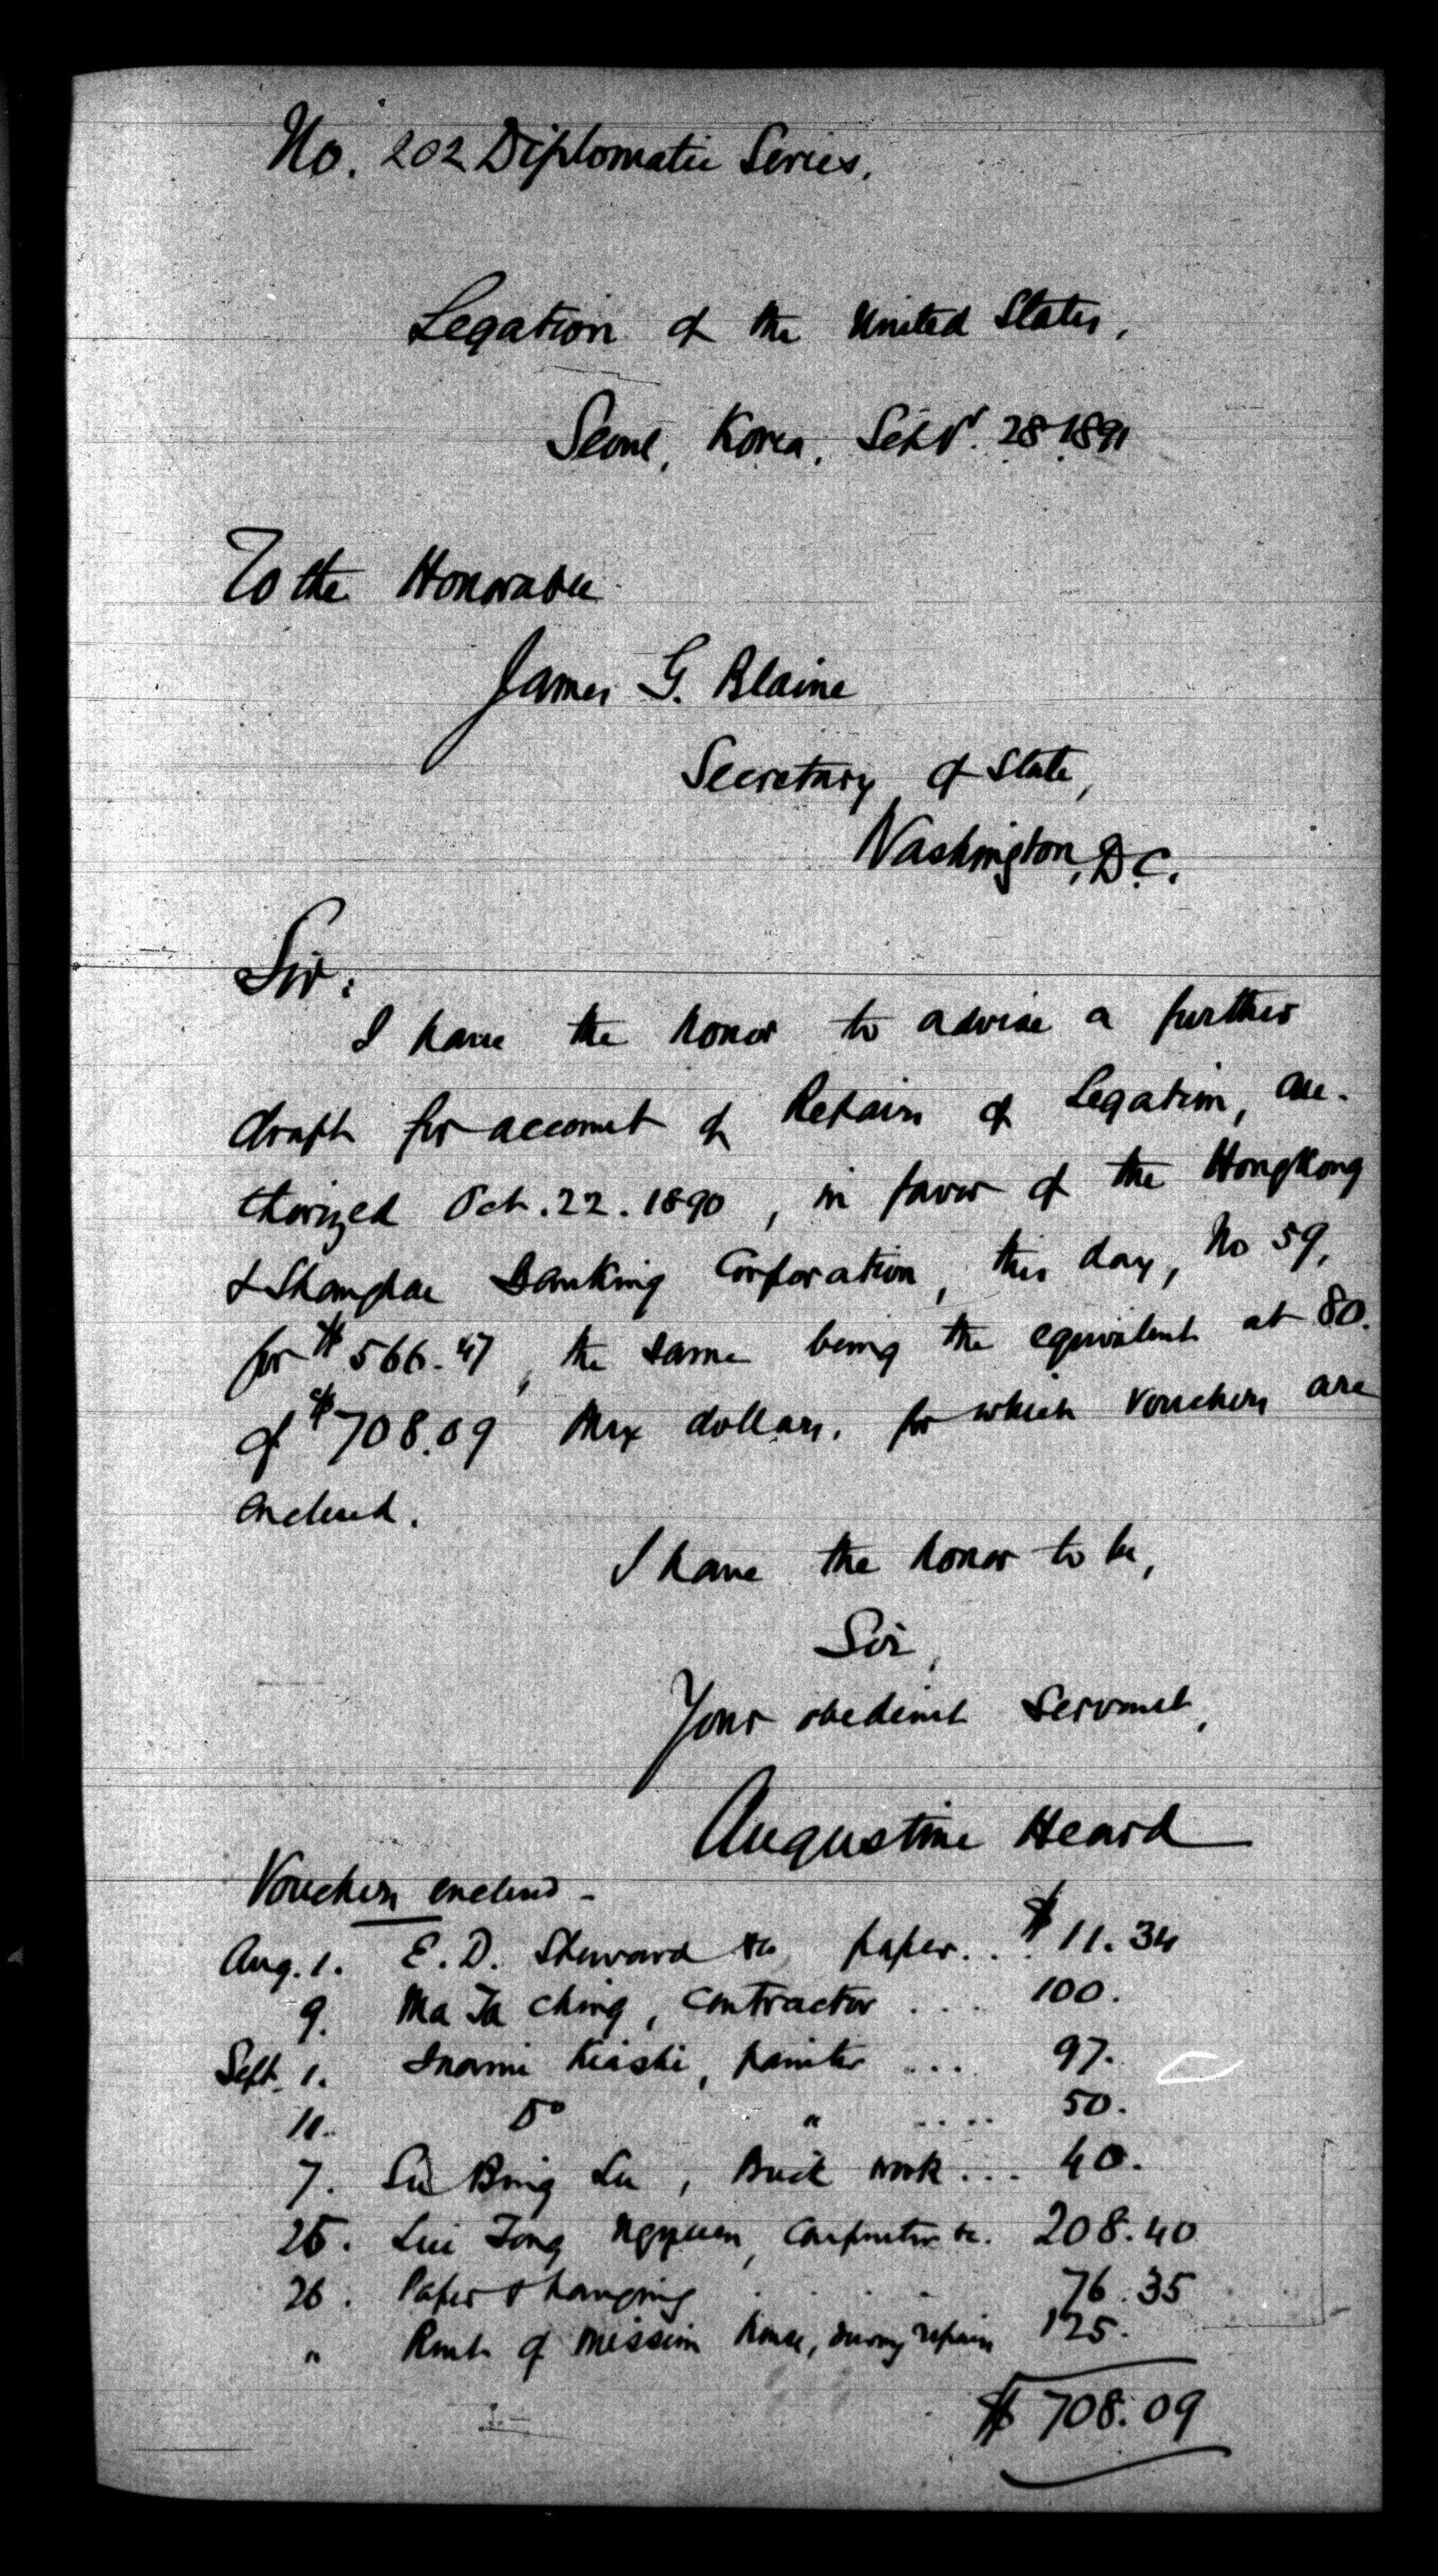 No. 202 Diplomatic Series.
Legation of the United States,
Seoul, Korea, Sept. 28 1891
To the Honorable
James G. Blaine
Secretary of State,
Washington, D.C.
Sir:
I have the honor to advise a further
draft for account of Repairs of Legation, au-
thorized Oct. 22. 1890, in favor of the HongKong
& Shanghae Banking Corporation, this day, No 59,
for $566.47, the same being the equivalent at 80.
of $708.09 Mex dollars, for which vouchers are
enclosed.
I have the honor to be,
Sir,
Your obedient servant,
Augustine Heard
Vouchers enclosed -
Aug. 1. E. D. Steward paper... $11.34
9. Ma Ta Ching, contractor .... 100.
Sept. 1. Kiaski, painter ... 97.
11. Do " .... 50.
7. Su Bing Lu, Brick work... 40.
25. Lui Tong Nguyen, Carpenter &c. 208.40
26. Paper & hanging . . . . 76.35
" Rent of mission house, during repairs 125.
$708.09